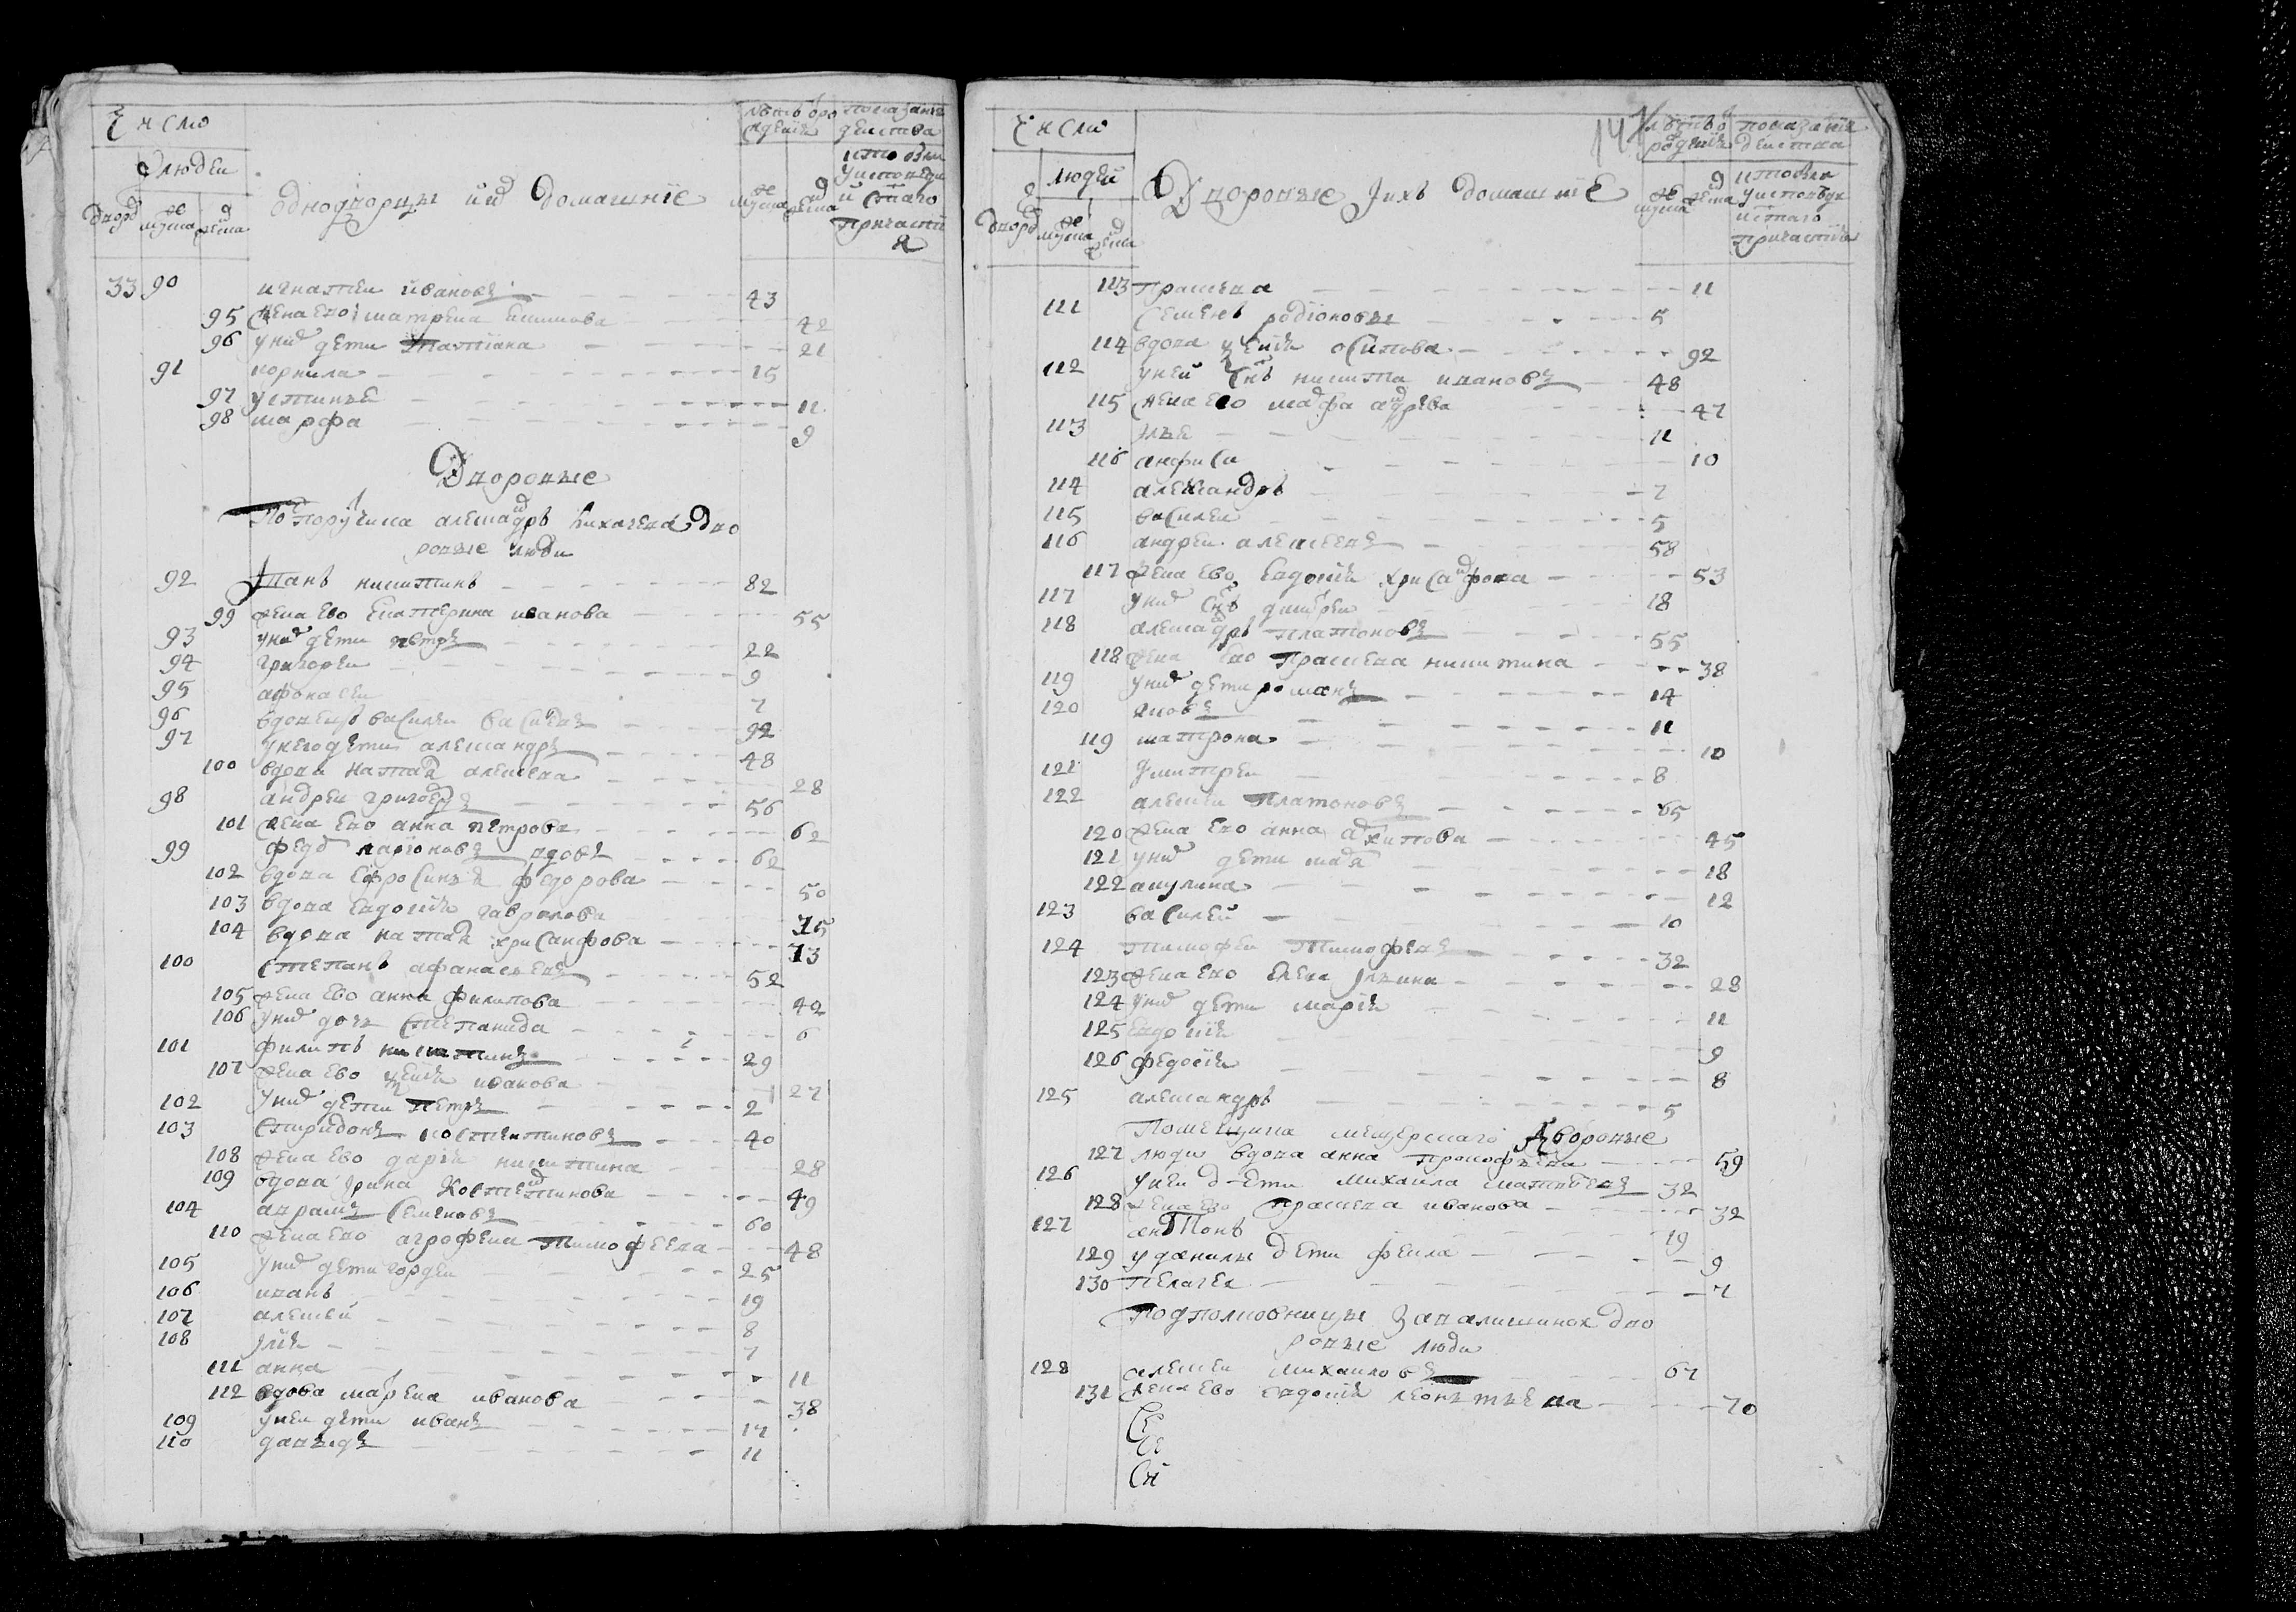 Число
людеи
дворо мужеска женска
Однодворцы и их домашние
лѣтъ от рождения
мужеска женска
показание деиства
кто был у исповеди и святаго причастия
33 90 игнатеи ивановъ 43
95 жена ево матрена екимова 42
96 у них дети татиана 21
91 корнила 15
97 устинья 11
98 марфа 9
Дворовые
Порутчика алексадръ лихачева дво
ровые люди
92 Иванъ никитинъ 82
99 жена ево екатерина иванова 55
93 у них дети петръ 22
94 григореи 9
95 афонасеи 7
96 вдовецъ василеи 92
97 у него дети александръ 48
100 вдова алексеева 28
98 андреи 56
101 жена ево анна петрова 62
99 ларионовъ вдовъ 62
102 вдова ефросинья федорова 50
103 вдова евдокия гаврилова 75
104 вдова хрисанфова 73
100 степанъ афанасьевъ 52
105 жена ево анна филипова 42
106 у них дочь степанида 6
101 филипъ никитинъ 29
107 жена ево иванова 27
102 у них дети петръ 2
103 спиридонъ костентиновъ 40
108 жена ево дария никитина 28
109 вдова ирина костентинова 49
104 аврамъ семеновъ 60
110 жена ево агрофена тимофеева 48
105 у них дети гордеи 25
106 иванъ 19
107 алексеи 8
108 илия 7
111 анна 11
112 вдова марена иванова 38
109 у неи дети иванъ 17
110 давыдъ 11
147
Число
людеи
дворо мужеска женска
Дворовые и их домашние
лѣтъ от рождения
мужеска женска
показание деиства
кто был у исповеди и святаго причастия
113 прасковя 11
111 семенъ родионовъ 5
114 вдова осипова 92
112 у неи сынъ никита ивановъ 48
115 жена ево марфа андрева 47
113 илья 11
116 анфиса 10
114 александръ 7
115 василеи 5
116 андреи алексеевъ 58
117 жена ево евдокия хрисанфова 53
117 у них сынъ дмитреи 18
118 алексадръ платоновъ 55
118 жена ево прасковя никитина 38
119 у них дети романъ 14
120 яковъ 11
119 матрона 10
121 дмитреи 8
122 алексеи платоновъ 65
120 жена ево анна архипова 45
121 у них дети 18
122 акулина 12
123 василеи 10
124 тимофеи тимофеевъ 32
123 жена ево елена ильина 28
124 у них дети мария 11
125 евдокия 9
126 федосия 8
125 александръ 5
Помещика мещерскаго дворовые
127 люди вдова анна прокофьева 59
126 у неи дети михаила матвеевъ 32
128 жена ево прасковя иванова 32
127 антонъ 19
129 у данилы дети фекла 9
130 пелагея 7
Подполковницы завалишинои дво
ровые люди
128 алексеи михаиловъ 67
131 жена ево евдокия леонтьева 70